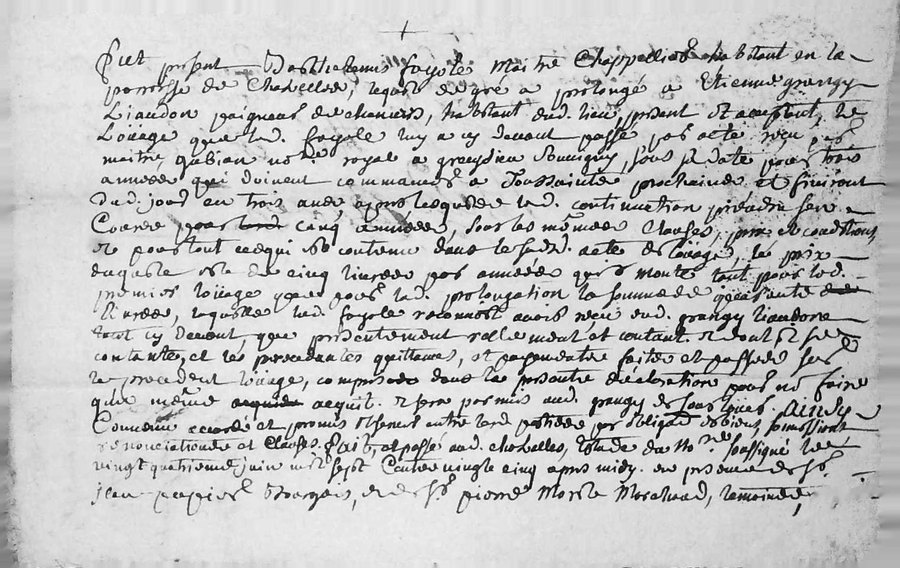 +
Fut present Barthelemis fayole Maitre Chappellier habitant en la
parroisse de Chevelles, lequel de gré a prolongé a Etienne grangy
Liaudon peigneur de chanvre, habitant dud. lieu, present et acceptant, le
Louage que led. fayole luy a cy devant passé par acte reçu par
maitre gabian notre royal a , sous sa date pour trois
années qui doivent commancer a Toussainte prochaine et finiront
dud. jour en trois ans, apres lesquelles lad. continuation prendra son
Cource pour cinq années, sous les mêmes clauses, prix et conditions,
et pour tout ce qui est contenu dans le susd. acte de louage, le prix
duquel est de cinq livres par année qui monte tant pour led.
premier loüage que pour lad. prolongation la somme de quarante
livres, laquelle led. fayole reconnoit avoir reçu dud. grangy liaudon
tant cy devant, que presentement réellement et contant. et dont il se
contante, et les precedantes quittances, et faites et passées sur
le precedent loüage, comprise dans la presente déclaration pour ne faire
que même acquit. et sera permis aud. grangy de Ainsy
Convenu accordé et promis observer entre lesd. parties par obligaon de biens, soumissions
renonciations et clauses. fait, et passé aud. chevelles, étude du nore soussigné le
vingt quatrieme juin mil sept Cent vingt cinq apres midy. en presence de sr
jean papier Bourgeois, et de sr pierre Marchand, temoins,